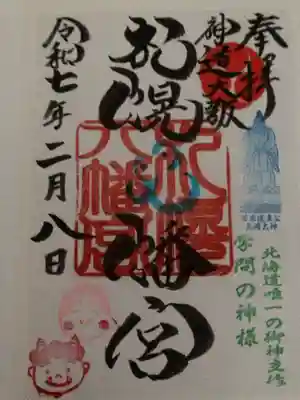 奉拝
神道大教
札幌八幡宮
八幡宮
令和七年二月八日
北海道唯一の御神立像
学問の神様